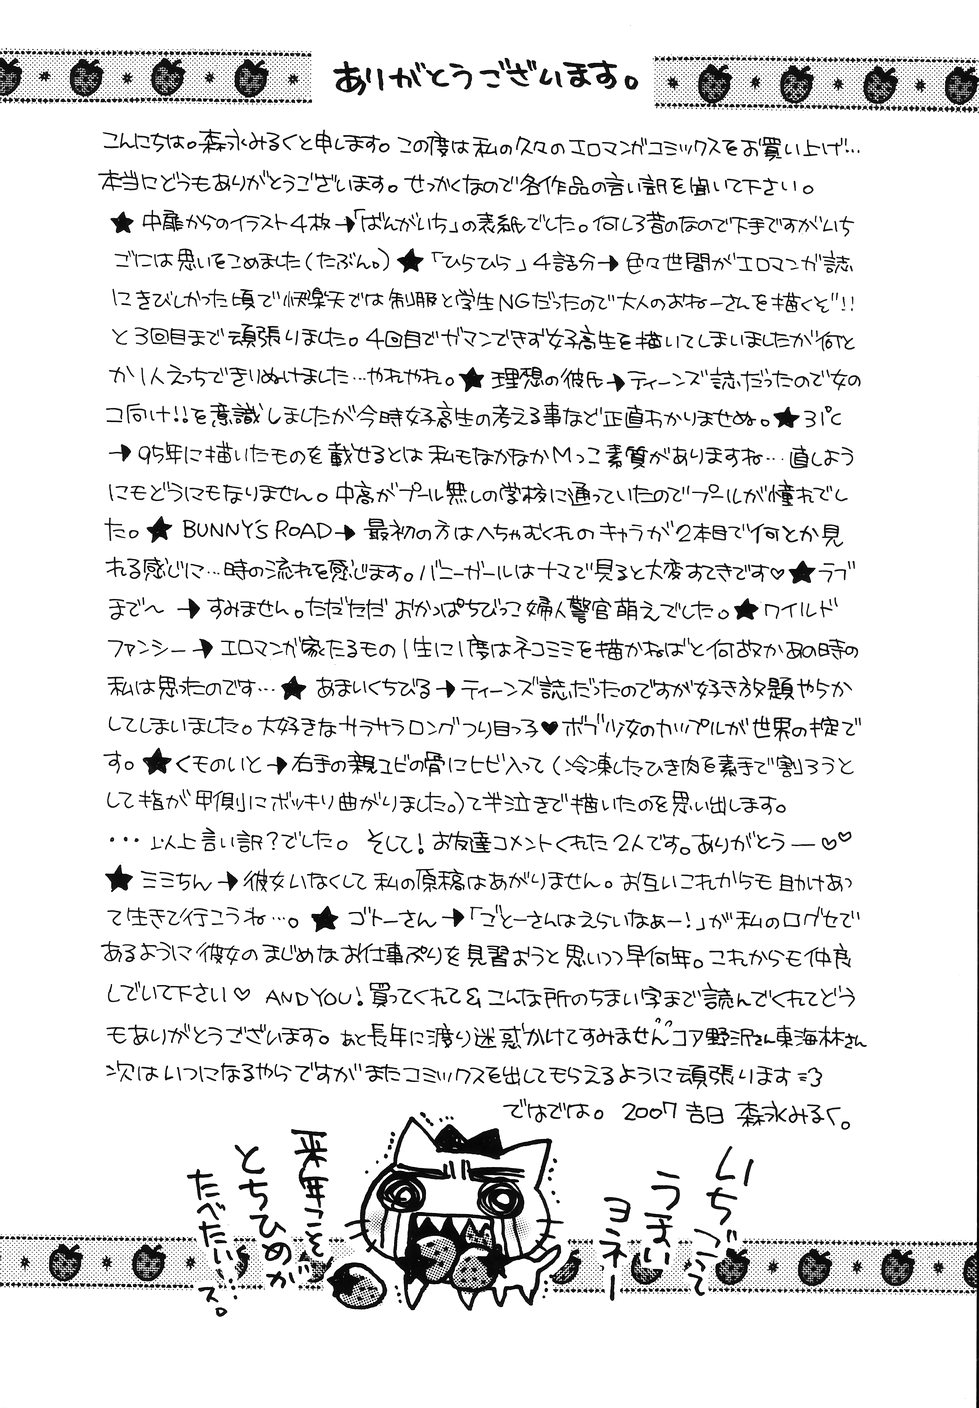 ありがとうございます。
こんにちは。森永みるくと申します。この度は私の久々のエロマンガコミックスをお買い上げ…
本当にどうもありがとうございます。せっかくなので各作品の言い訳を聞いて下さい。
★中扉からのイラスト4枚→「ばんがいち」の表紙でした。何しろ昔のなので下手ですがいち
ごには思いをこめました(たぶん。)★「ひらひら」4話分→色々世間がエロマンガ誌
にきびしかった頃で快楽天では制服と学生NGだったので大人のおねーさんを描くぞ!!
と3回目まで頑張りました。4回目でガマンできず女子高生を描いてしまいましたが何と
か1人えっちできりぬけました…やれやれ。★理想の彼氏→ティーンズ誌だったので女の
コ向け!!を意識しましたが今時女子高生の考える事など正直わかりませぬ。★31℃
→95年に描いたものを載せるとは私もなかなかMっこ素質がありますね…直しよう
にもどうにもなりません。中高がプール無しの学校に通っていたのでプールが憧れでし
た。★BUNNY'S ROAD→最初の方はへちゃむくれのキャラが2本目で何とか見
れる感じに…時の流れを感じます。バニーガールはナマで見ると大変すてきです♡★ラブ
まで〜→すみません。ただただおかっぱちびっこ婦人警官萌えでした。★ワイルド
ファンシー→エロマンガ家たるもの1生に1度はネコミミを描かねばと何故かあの時の
私は思ったのです…★あまいくちびる→ティーンズ誌だったのですが好き放題やらか
してしまいました。大好きなサラサラロングつり目っ子♥ボブ少女のカップルが世界の掟で
す。★くものいと→右手の親ユビの骨にヒビ入って(冷凍したひき肉を素手で割ろうと
して指が甲側にボッキリ曲がりました。)て半泣きで描いたのを思い出します。
・・・以上言い訳?でした。そして!お友達コメントくれた2人です。ありがとうー♡♡
★ミミちん→彼女いなくして私の原稿はあがりません。お互いこれからも助けあっ
て生きて行こうね…。★ゴトーさん→「ごとーさんはえらいなぁー!」が私の口グセで
あるように彼女のまじめなお仕事ぷりを見習おうと思いつつ早何年。これからも仲良
しでいて下さい♡ AND YOU!買ってくれて&こんな所のちまい字まで読んでくれてどう
もありがとうございます。あと長年に渡り迷惑かけてすみません コアの野沢さん東海林さん
次はいつになるやらですがまたコミックスを出してもらえるように頑張ります=3
ではでは。2007 吉日 森永みるく。
いちごって
うまい
ヨネー
来年こそ
とちひめが
たべたいい…ズ。